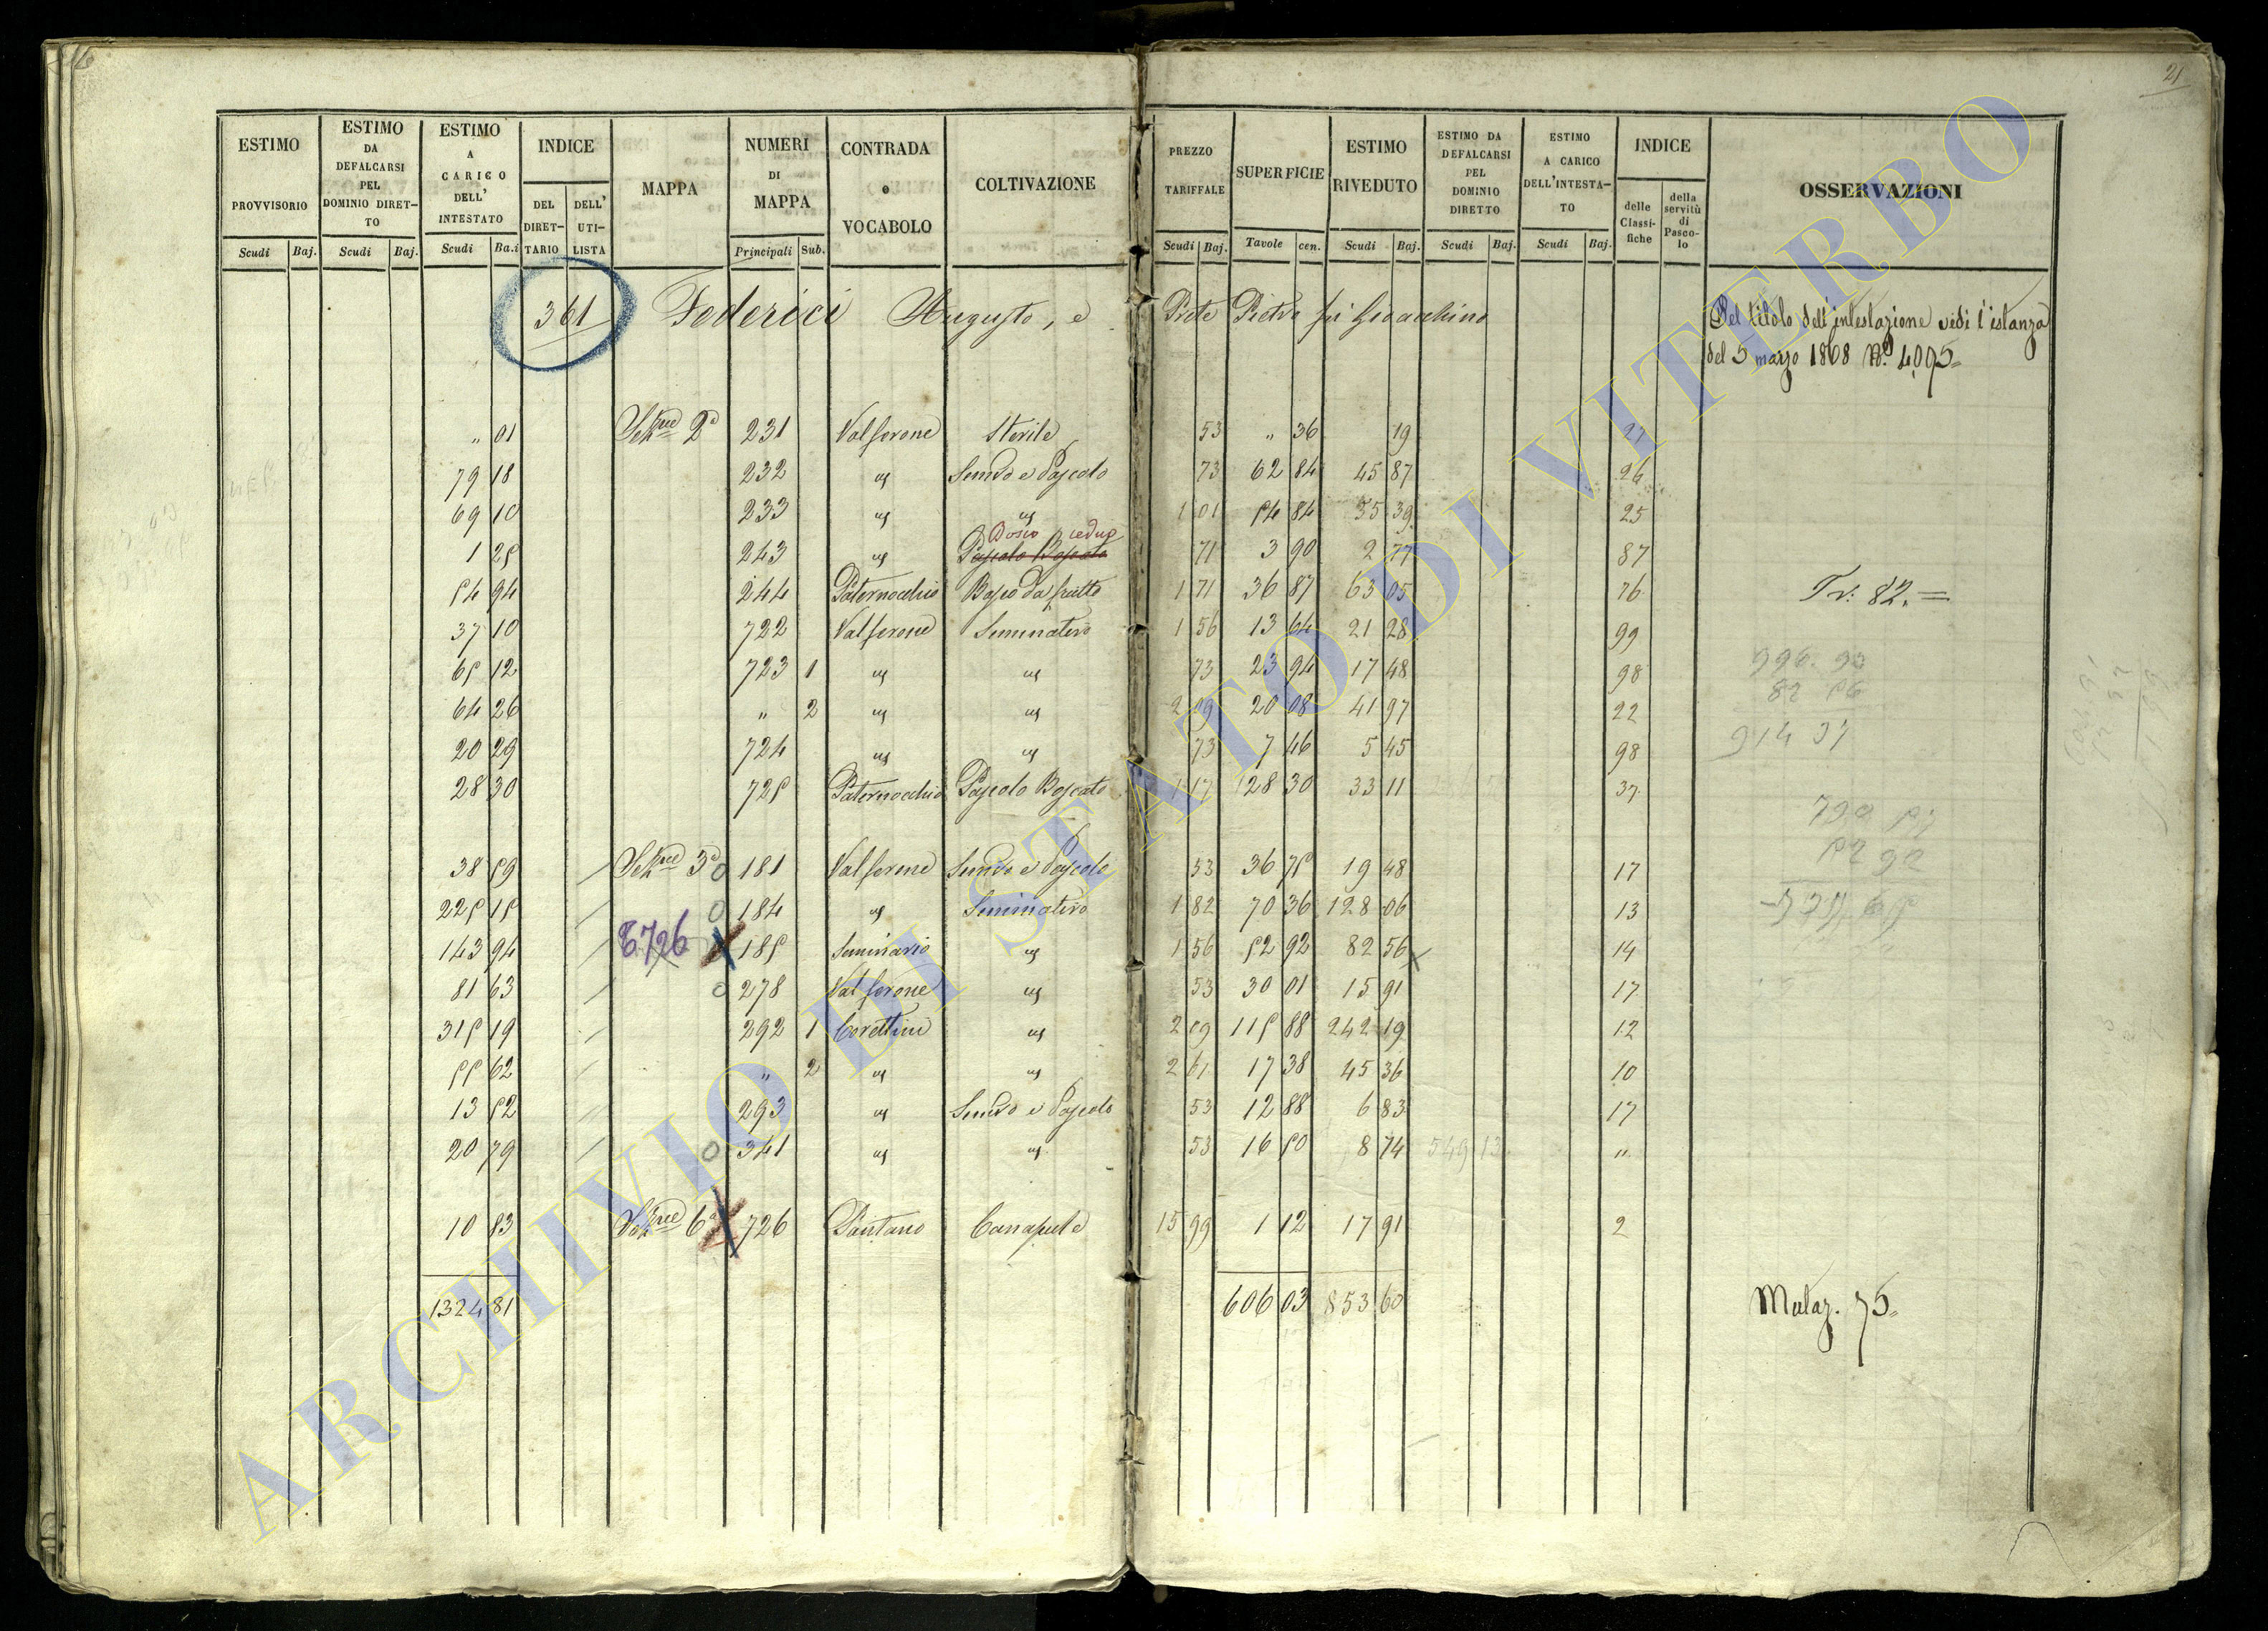 16
21
ESTIMO PROVVISORIO | ESTIMO DA DEFALCARSI PEL DOMINIO DIRETTO | ESTIMO A CARICO DELL' INTESTATO | INDICE | MAPPA | NUMERI DI MAPPA | CONTRADA o VOCABOLO | COLTIVAZIONE | PREZZO TARIFFALE | SUPERFICIE | ESTIMO RIVEDUTO | ESTIMO DA DEFALCARSI PEL DOMINIO DIRETTO | ESTIMO A CARICO DELL'INTESTATO | INDICE | OSSERVAZIONI
DEL DIRETTARIO | DELL' UTILISTA | delle Classifiche | della servitù di Pascolo
Scudi | Baj. | Scudi | Baj. | Scudi | Ba.i | Principali | Sub. | Scudi | Baj. | Tavole | cen. | Scudi | Baj. | Scudi | Baj. | Scudi | Baj.
361 Federici Augusto, e Prete Pietro fu Gioacchino
Pel titolo dell'intestazione vedi l'istanza
del 5 marzo 1868 N.º 4095
" 01 2ª 231 Valferone Sterile 53 " 36 19 21
79 18 232 " Semvo e Pascolo 73 62 84 45 87 26
69 10 233 " " 1 01 54 84 55 39 25
Bosco ceduo
1 25 243 " Pascolo Boscato 71 3 90 2 77 87
54 94 244 Paternocchio Bosco da frutto 1 71 36 87 63 05 76 Tv: 82. =
37 10 722 Valferone Seminativo 1 56 13 64 21 28 99
65 12 723 1 " " 73 23 94 17 48 98
64 26 " 2 " " 2 09 20 08 41 97 22
20 29 724 " " 73 7 46 5 45 98
28 30 725 Paternocchio Pascolo Boscato 1 17 28 30 33 11 37
996. 93
82 56
914 37
38 59 3ª 0 181 Valferone Semvo e Pascolo 53 36 75 19 48 17
225 15 0 184 " Seminativo 1 82 70 36 128 06 13
143 94 6726 185 Seminario " 1 56 52 92 82 56 14
81 63 0 278 Valferone " 53 30 01 15 91 17
315 19 292 1 Corettini " 2 09 115 88 242 19 12
55 62 " 2 " " 2 61 17 38 45 36 10
13 52 293 " Semvo e Pascolo 53 12 88 6 83 17
20 79 0 341 " " 53 16 50 8 74 549 13 "
10 83 6ª 726 Pantano Canapule 15 99 1 12 17 91 2
1324 81 606 03 853 60
Mulaz. 75
ARCHIVIO DI STATO DI VITERBO